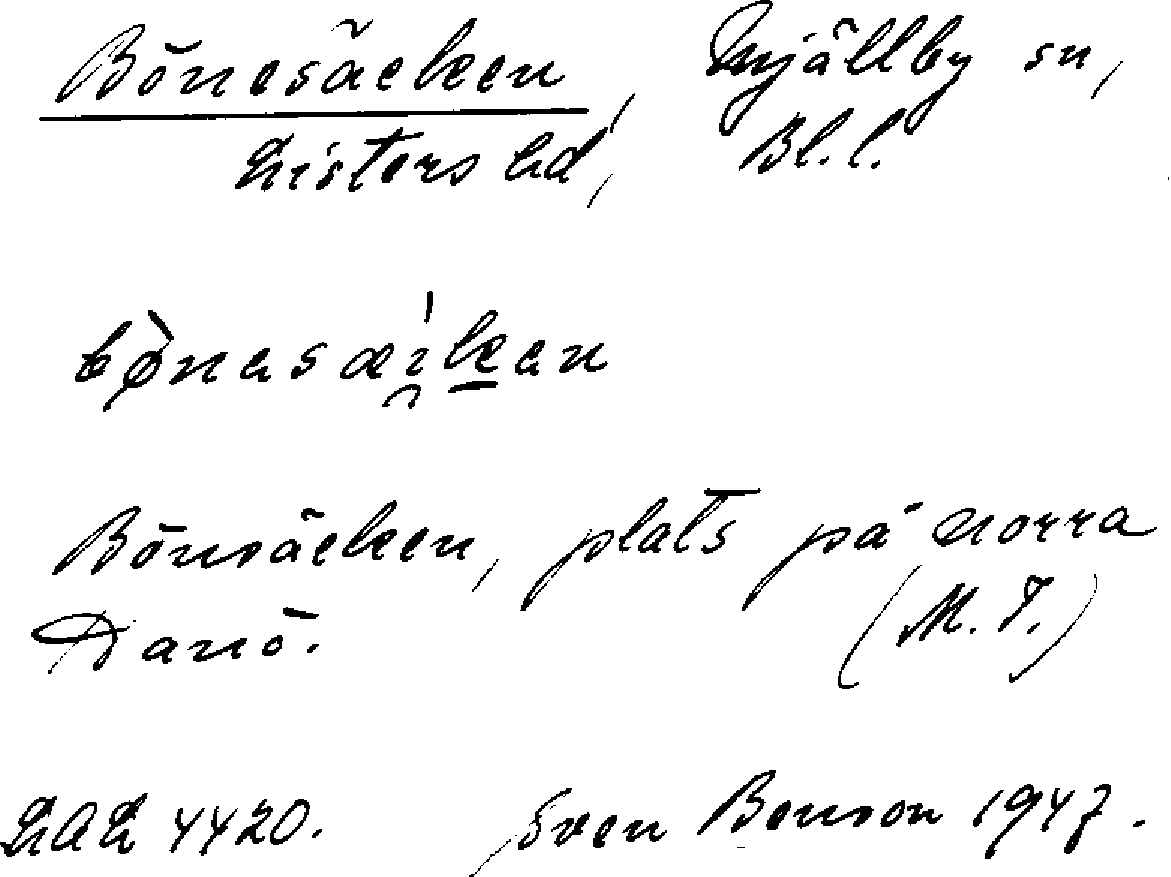 Bönesäcken, Mjällby sn,
Listers hd, Bl.l.
bø̀nesæi̯ken
Bönsäcken, plats på norra
Danö. (M.T.)
LAL 4420. Sven Benson 1947.